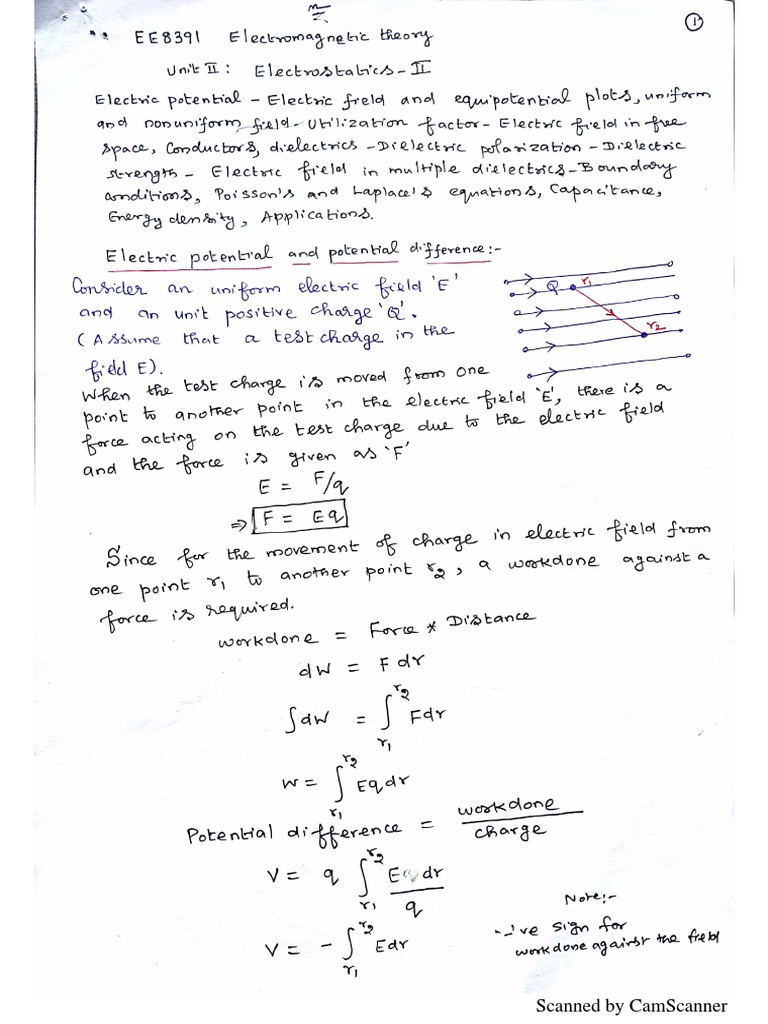 1
EE8391 Electromagnetic theory
Unit II : Electrostatics - II
Electric potential - Electric field and equipotential plots, uniform
and nonuniform field - Utilization factor - Electric field in free
space, Conductors, dielectrics - Dielectric polarization - Dielectric
strength - Electric field in multiple dielectrics - Boundary
conditions, Poisson's and Laplace's equations, Capacitance,
Energy density, Applications.
Electric potential and potential difference:-
Consider an uniform electric field 'E'
and an unit positive charge 'Q'.
(Assume that a test charge in the
field E).
Q r1
r2
When the test charge is moved from one
point to another point in the electric field 'E', there is a
force acting on the test charge due to the electric field
and the force is given as 'F'
E = F/q
⇒ F = Eq
Since for the movement of charge in electric field from
one point r1 to another point r2, a workdone against a
force is required.
workdone = Force * Distance
dW = F dr
∫dW = ∫_{r1}^{r2} Fdr
W = ∫_{r1}^{r2} Eqdr
Potential difference = workdone / charge
V = q ∫_{r1}^{r2} Eq dr / q
V = - ∫_{r1}^{r2} Edr
Note:-
-'ve sign for
workdone against the field
Scanned by CamScanner